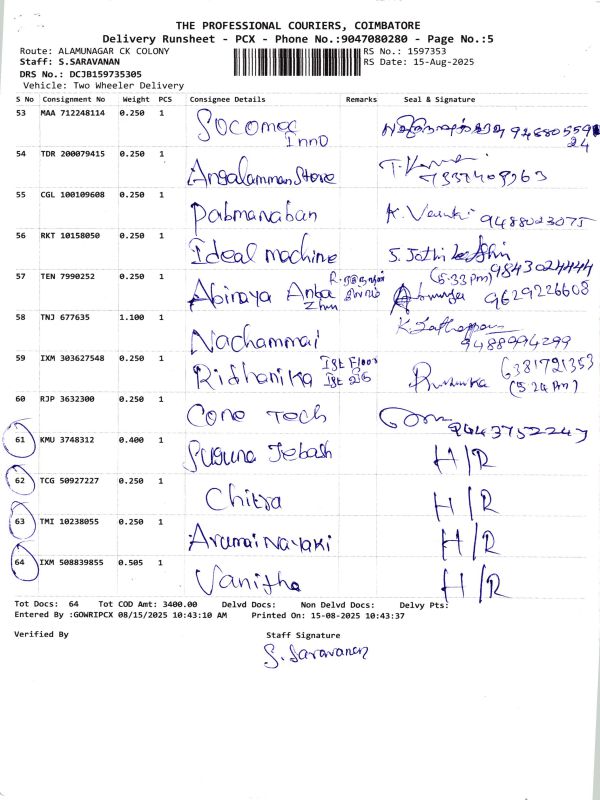 THE PROFESSIONAL COURIERS, COIMBATORE
Delivery Runsheet - PCX - Phone No.:9047080280 - Page No.:5
Route: ALAMUNAGAR CK COLONY
RS No.: 1597353
Staff: S.SARAVANAN
RS Date: 15-Aug-2025
DRS No.: DCJB159735305
Vehicle: Two Wheeler Delivery
S No Consignment No Weight PCS Consignee Details Remarks Seal & Signature
53 MAA 712248114 0.250 1 Socomec Inno 9468055991
24
54 TDR 200079415 0.250 1 Angalamman Store T.
55 CGL 100109608 0.250 1 Pabmanaban K. 9488023075
56 RKT 10158050 0.250 1 Ideal machine S. Jothi
(5:33 Pm) 9843024444
57 TEN 7990252 0.250 1 Abinaya Anba 9629226608
58 TNJ 677635 1.100 1 Nachammai K. 9488994299
59 IXM 303627548 0.250 1 Ridhanika Ist Floor 6381721353
(5:24 Pm)
60 RJP 3632300 0.250 1 Cone Tech 9443752247
61 KMU 3748312 0.400 1 Suguna Jebash H/R
62 TCG 50927227 0.250 1 Chitra H/R
63 TMI 10238055 0.250 1 Arumai Nayaki H/R
64 IXM 508839855 0.505 1 Vanitha H/R
Tot Docs: 64 Tot COD Amt: 3400.00 Delvd Docs: Non Delvd Docs: Delvy Pts:
Entered By :GOWRIPCX 08/15/2025 10:43:10 AM Printed On: 15-08-2025 10:43:37
Verified By Staff Signature
S. Saravanan